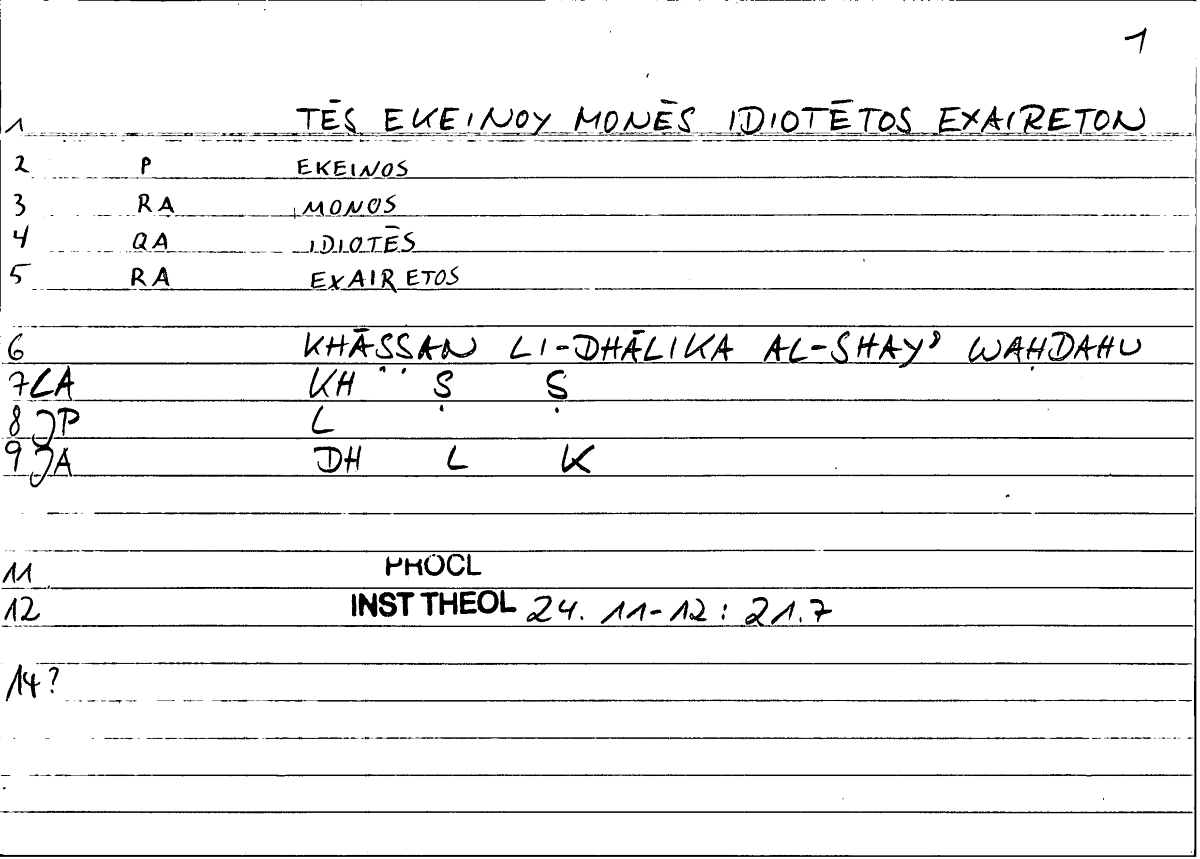 1
1 TĒS EKEINOY MONĒS IDIOTĒTOS EXAIRETON
2 P EKEINOS
3 RA MONOS
4 QA IDIOTĒS
5 RA EXAIRETOS
6 KHĀṢṢAN LI-DHĀLIKA AL-SHAYʾ WAḤDAHU
7 CA KH Ṣ Ṣ
8 JP L
9 JA DH L K
11 PROCL
12 INST THEOL 24. 11-12 : 21.7
14?